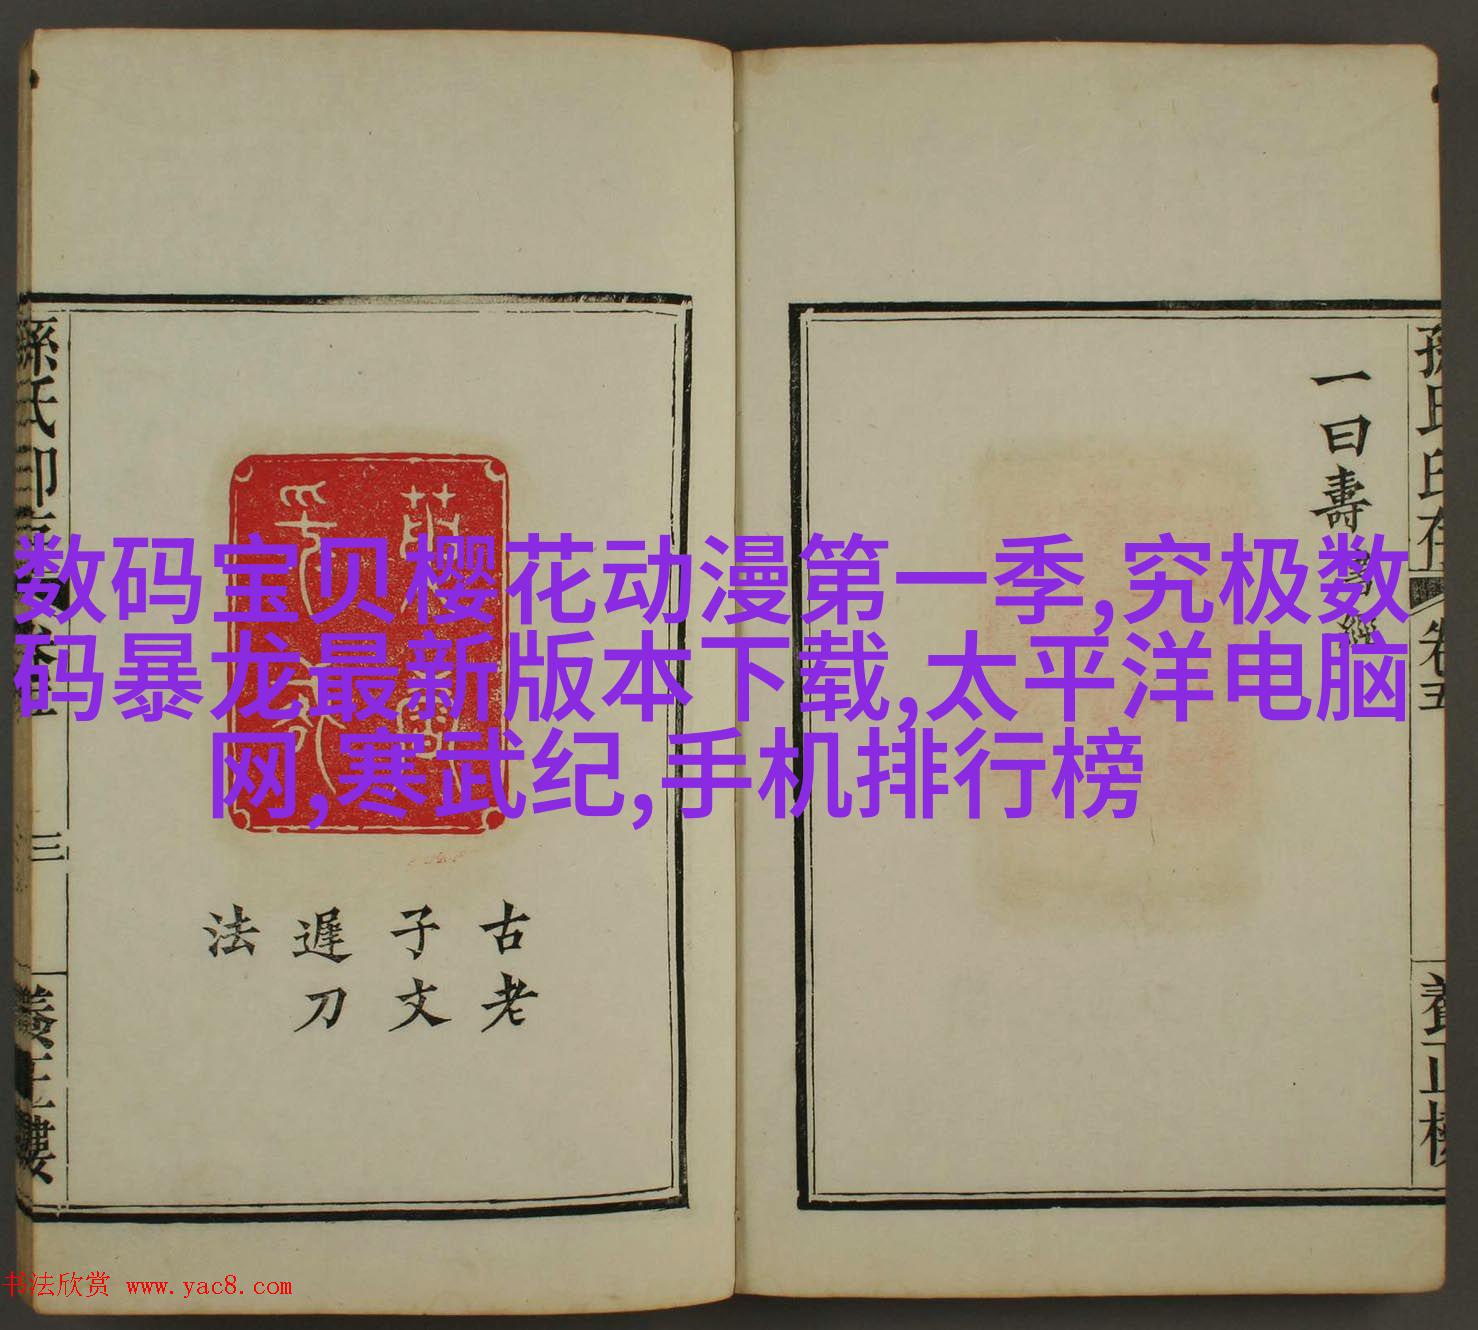 数码宝贝樱花动漫第一季,究极数
码暴龙最新版本下载,太平洋电脑
网,寒武纪,手机排行榜
一曰壽
經
卷五
養正樓
孫氏印
三
養正樓
古老
子文
遲刀
法
书法欣赏 www.yac8.com